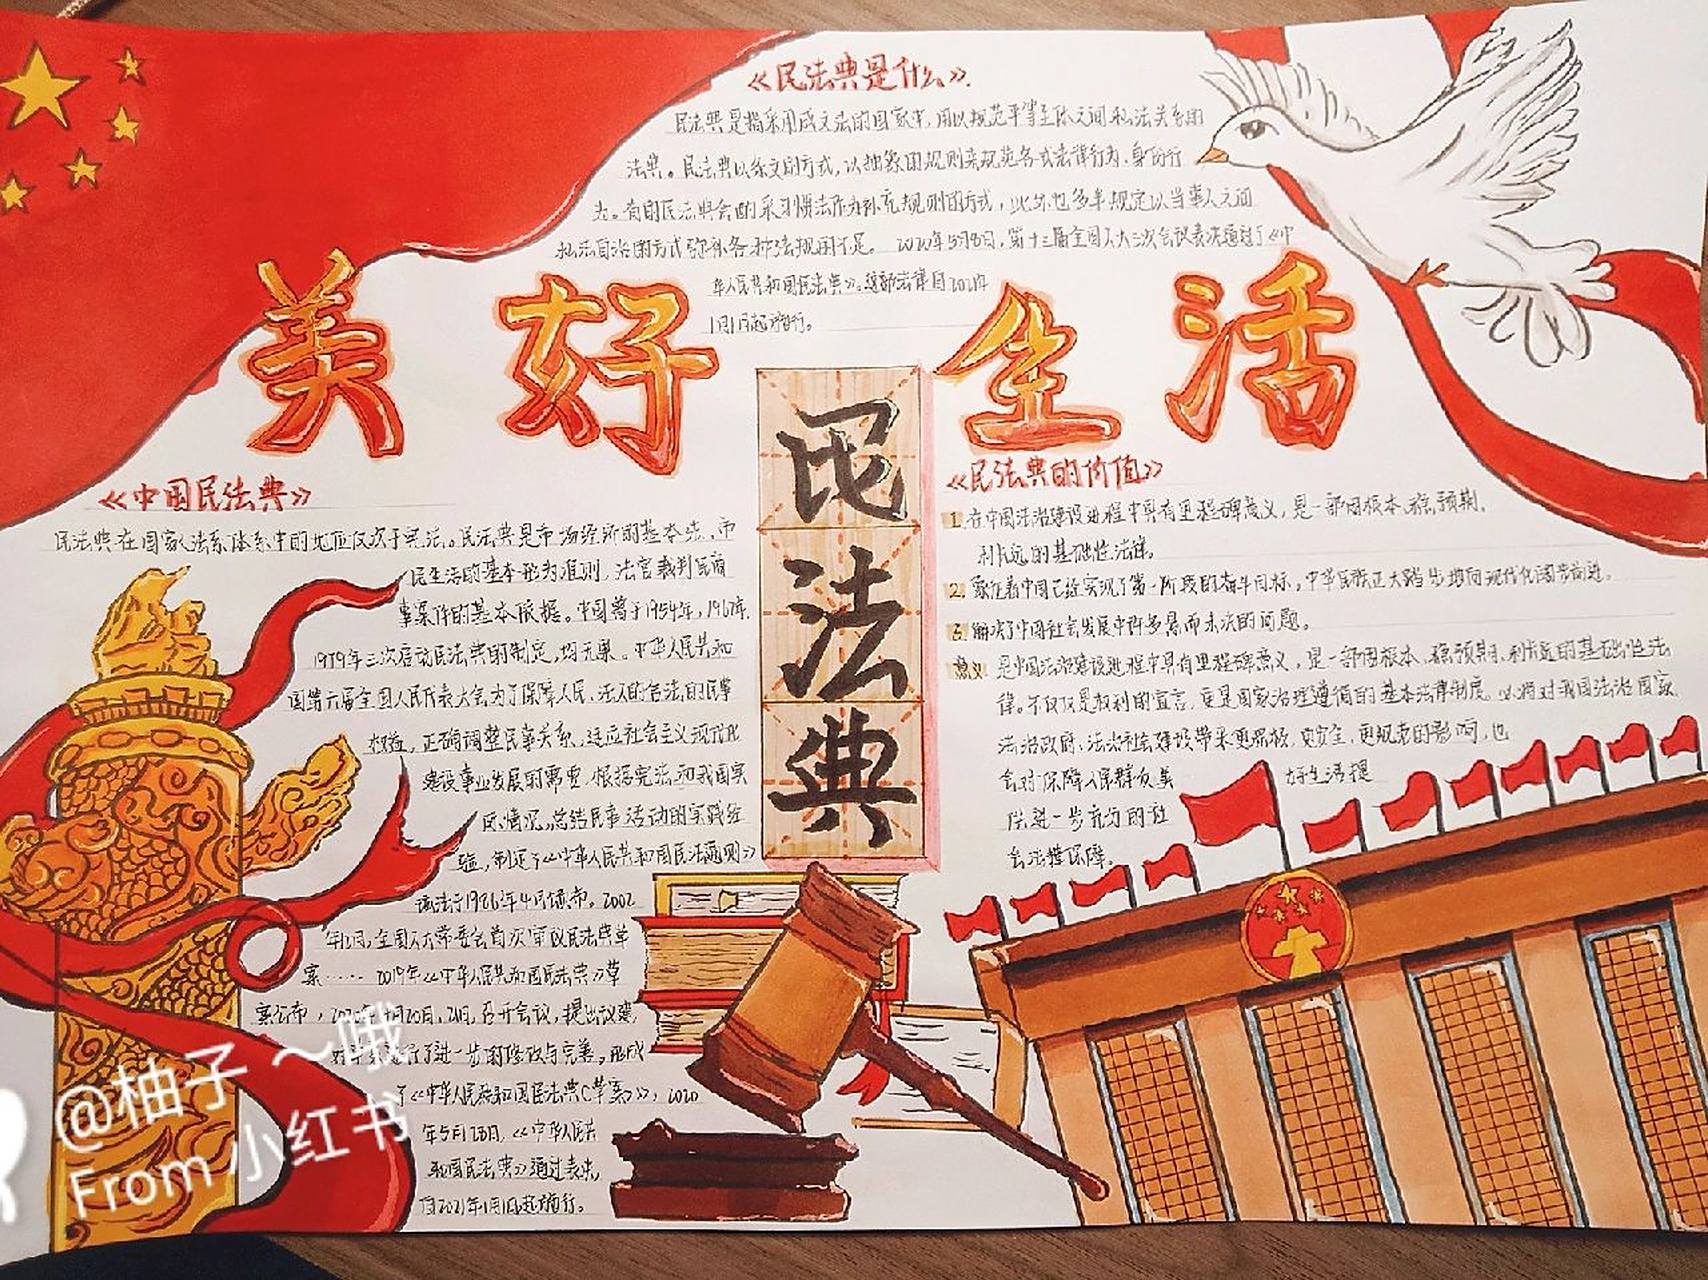 《民法典是什么》
民法典是指采用成文法的国家中,用以规范平等主体之间私法关系的
法典。民法典以条文的方式,以抽象的规则来规范各式法律行为、身份行
为。有的民法典会酌采习惯法作为补充规则的方式,此外也多半规定以当事人之间
私法自治的方式弥补各种法规的不足。2020年5月28日,第十三届全国人大三次会议表决通过了《中
华人民共和国民法典》。这部法律自2021年
1月1日起施行。
美好生活
民法典
《中国民法典》
民法典在国家法系体系中的地位仅次于宪法。民法典是市场经济的基本法、市
民生活的基本行为准则,法官裁判民商
事案件的基本依据。中国曾于1954年,1962年,
1979年三次启动民法典的制定,均无果。中华人民共和
国第六届全国人民代表大会为了保障人民、法人的合法的民事
权益,正确调整民事关系,适应社会主义现代化
建设事业发展的需要,根据宪法和我国实
际情况,总结民事活动的实践经
验,制定了《中华人民共和国民法通则》
该法于1986年4月颁布。2002
年12月,全国人大常委会首次审议民法典草
案…… 2019年《中华人民共和国民法典》草
案公布,2020年1月20日,21日,召开会议,提出议建,
对草案进行了进一步的修改与完善,形成
了《中华人民共和国民法典(草案)》,2020
年5月28日,《中华人民共
和国民法典》通过表决,
自2021年1月1日起施行。
《民法典的价值》
1.在中国法治建设进程中具有里程碑意义,是一部固根本、稳预期、
利长远的基础性法律。
2.象征着中国已经实现了第一阶段的奋斗目标,中华民族正大踏步地向现代化阔步前进。
3.解决了中国社会发展中许多悬而未决的问题。
意义 是中国法治建设进程中具有里程碑意义,是一部固根本、稳预期、利长远的基础性法
律。不仅仅是权利的宣言,更是国家治理遵循的基本法律制度。必将对我国法治国家、
法治政府、法治社会建设带来更深极,更安全,更规范的影响,也
会对保障人民群众美 好生活提
供进一步充分的社
会法律保障。
@柚子~哦
From 小红书